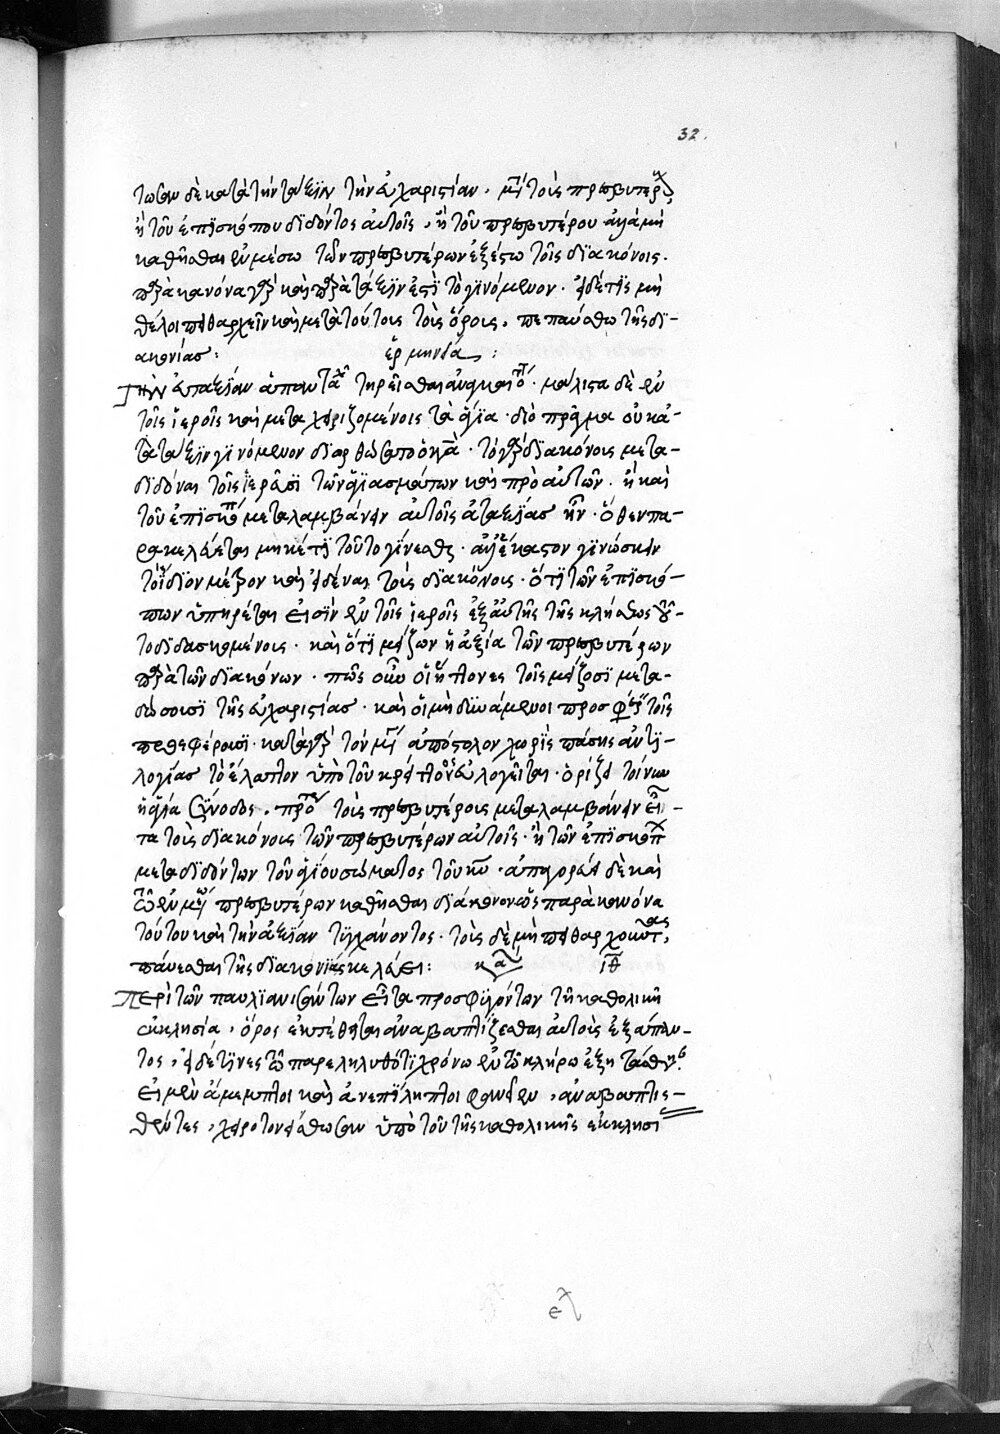 32.
τωσαν δὲ κατὰ τὴν τάξιν τὴν εὐχαριστίαν, μετὰ τοὺς πρεσβυτέρους
ἢ τοῦ ἐπισκόπου διδόντος αὐτοῖς, ἢ τοῦ πρεσβυτέρου ἀλλὰ μὴ
καθῆσθαι ἐν μέσω τῶν πρεσβυτέρων ἐξέστω τοῖς διακόνοις.
παρὰ κανόνα γὰρ καὶ παρὰ τάξιν ἐστὶ τὸ γινόμενον. εἰ δέ τις μὴ
θέλοι πειθαρχεῖν καὶ μετὰ τούτους τοὺς ὅρους, πεπαύσθω τῆς δι-
ακονίας:
ἑρμηνεία:
Τὴν εὐταξίαν ἁπανταχοῦ τηρεῖσθαι ἀναγκαῖον. μάλιστα δὲ ἐν
τοῖς ἱεροῖς καὶ μεταχειριζομένοις τὰ ἅγια. διὸ πρᾶγμα οὐ κα-
τὰ τάξιν γινόμενον διαρθώσατο ὁ κανών. τὸ γὰρ διακόνους μετα-
διδόναι τοῖς ἱερεῦσι τῶν ἁγιασμάτων καὶ πρὸ αὐτῶν. ἢ καὶ
τοῦ ἐπισκόπου μεταλαμβάνειν αὐτοῖς ἀταξίας ἦν. ὅθεν πα-
ρακελεύεται μηκέτι τοῦτο γίνεσθαι. ἀλλ' ἕκαστον γινώσκειν
τὸ ἴδιον μέτρον καὶ εἰδέναι τοὺς διακόνους. ὅτι τῶν ἐπισκό-
πων ὑπηρέται εἰσὶν ἐν τοῖς ἱεροῖς ἐξ αὐτῆς τῆς κλήσεως τοῦ-
το διδασκομένοις. καὶ ὅτι μείζων ἡ ἀξία τῶν πρεσβυτέρων
παρὰ τῶν διακόνων. πῶς οὖν οἱ ἥττονες τοῖς μείζοσι μετα-
δώσουσι τῆς εὐχαριστίας. καὶ οἱ μὴ δυνάμενοι προσφέρειν τοῖς
προσφέρουσι. κατὰ γὰρ τὸν μέγαν ἀπόστολον χωρὶς πάσης ἀντι-
λογίας τὸ ἔλαττον ὑπὸ τοῦ κρείττονος εὐλογεῖται. ὁρίζει τοίνυν
ἡ ἁγία σύνοδος. πρῶτον τοὺς πρεσβυτέρους μεταλαμβάνειν εἶ-
τα τοὺς διακόνους τῶν πρεσβυτέρων αὐτοῖς. ἢ τῶν ἐπισκόπων
μεταδιδόντων τοῦ ἁγίου σώματος τοῦ κυρίου. ἀπαγορεύει δὲ καὶ
τὸ ἐν μέσω πρεσβυτέρων καθῆσθαι διάκονον ὡς παρὰ κανόνα
τούτου καὶ τὴν ἀξίαν τυγχάνοντος. τοὺς δὲ μὴ πειθαρχοῦντας,
παύεσθαι τῆς διακονίας κελεύει: κα ιθ
Περὶ τῶν παυλιανισάντων εἶτα προσφυγόντων τῇ καθολικῇ
ἐκκλησία, ὅρος ἐκτέθηται ἀναβαπτίζεσθαι αὐτοὺς ἐξάπαν-
τος, εἰ δέ τινες τῶ παρεληλυθότι χρόνω ἐν τῶ κλήρω ἐξητάσθησαν.
εἰ μὲν ἄμεμπτοι καὶ ἀνεπίληπτοι φανεῖεν, ἀναβαπτισ-
θέντες, χειροτονείσθωσαν ὑπὸ τοῦ τῆς καθολικῆς ἐκκλησί